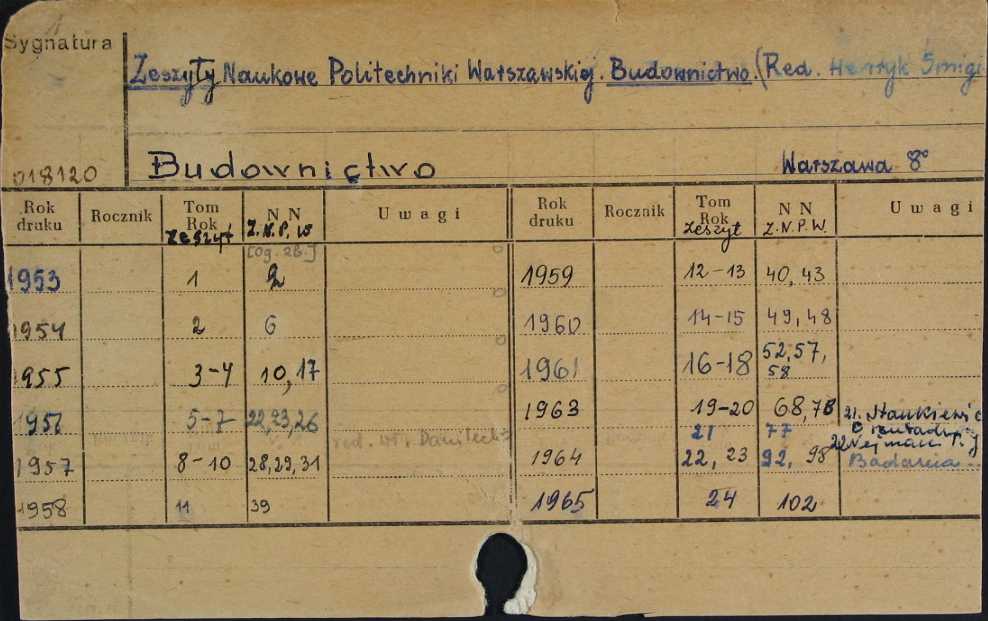 Sygnatura
Zeszyty Naukowe Politechniki Warszawskiej. Budownictwo. (Red. Henryk
018120 Budownictwo Warszawa 8°
Rok druku Rocznik Tom Rok Zeszyt N N Z.N.P.W Uwagi Rok druku Rocznik Tom Rok Zeszyt N N Z.N.P.W. Uwagi
[og. zb.]
1953 1 2 1959 12-13 40, 43
1954 2 6 1960 14-15 49, 48
1955 3-4 10, 17 1961 16-18 52, 57, 58
1956 5-7 22, 23, 26 red. 1963 19-20 68, 78 21. Stankiewic
21 77
1957 8-10 28, 29, 31 1964 22, 23 92, 98 Badania
1958 11 39 1965 24 102